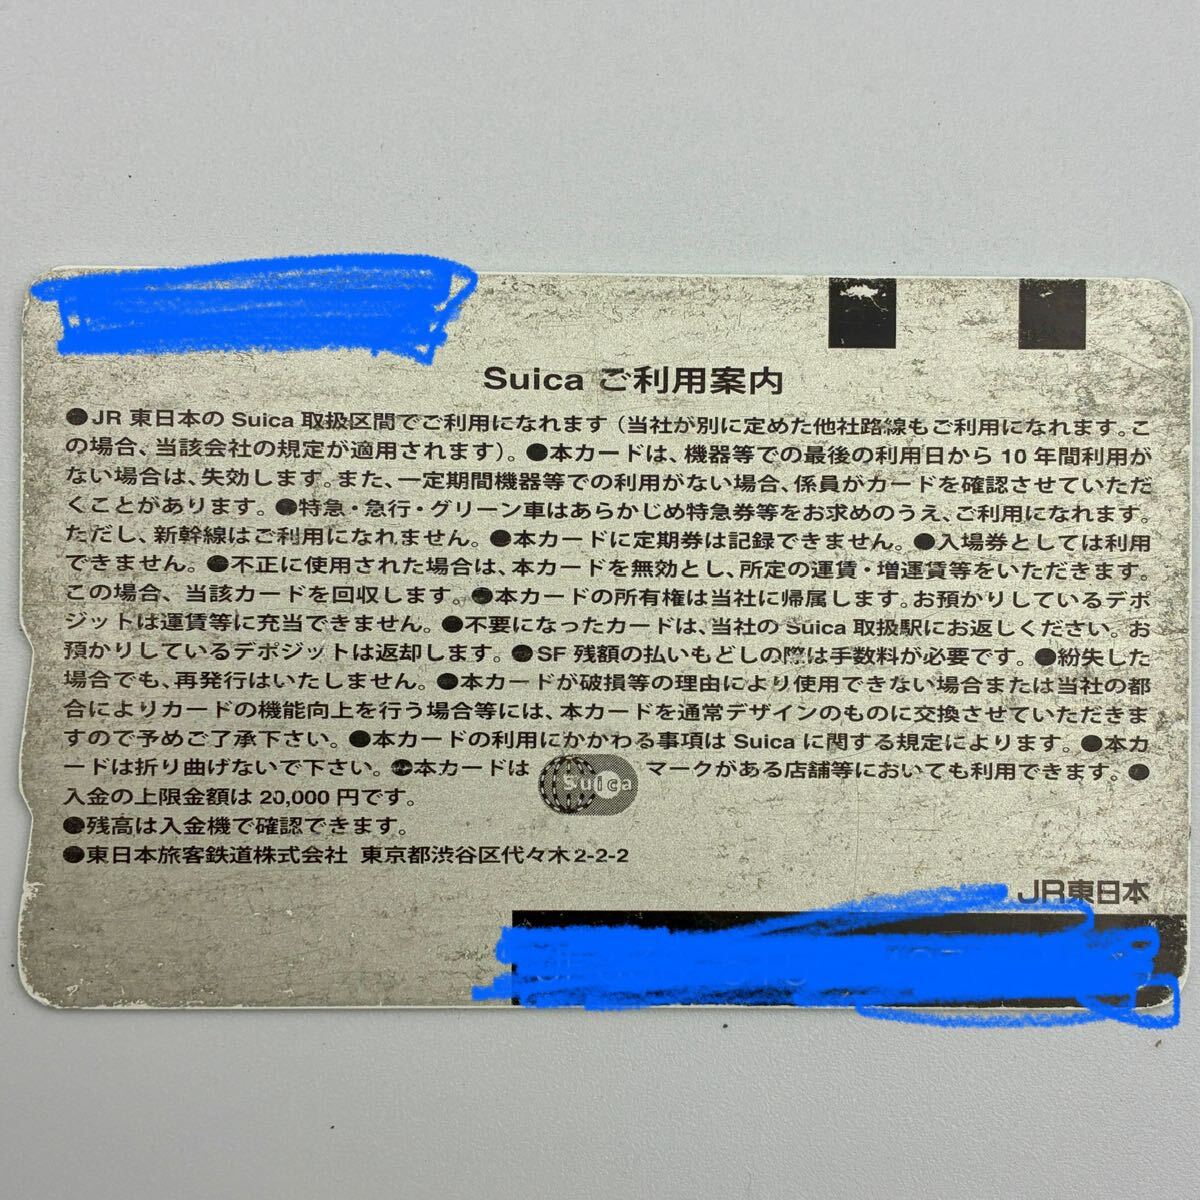 Suica ご利用案内
●JR 東日本の Suica 取扱区間でご利用になれます（当社が別に定めた他社路線もご利用になれます。こ
の場合、当該会社の規定が適用されます）。●本カードは、機器等での最後の利用日から 10 年間利用が
ない場合は、失効します。また、一定期間機器等での利用がない場合、係員がカードを確認させていただ
くことがあります。●特急・急行・グリーン車はあらかじめ特急券等をお求めのうえ、ご利用になれます。
ただし、新幹線はご利用になれません。●本カードに定期券は記録できません。●入場券としては利用
できません。●不正に使用された場合は、本カードを無効とし、所定の運賃・増運賃等をいただきます。
この場合、当該カードを回収します。●本カードの所有権は当社に帰属します。お預かりしているデポ
ジットは運賃等に充当できません。●不要になったカードは、当社の Suica 取扱駅にお返しください。お
預かりしているデポジットは返却します。●SF 残額の払いもどしの際は手数料が必要です。●紛失した
場合でも、再発行はいたしません。●本カードが破損等の理由により使用できない場合または当社の都
合によりカードの機能向上を行う場合等には、本カードを通常デザインのものに交換させていただきま
すので予めご了承下さい。●本カードの利用にかかわる事項は Suica に関する規定によります。●本カ
ードは折り曲げないで下さい。●本カードは Suica マークがある店舗等においても利用できます。●
入金の上限金額は 20,000 円です。
●残高は入金機で確認できます。
●東日本旅客鉄道株式会社 東京都渋谷区代々木2-2-2
JR東日本